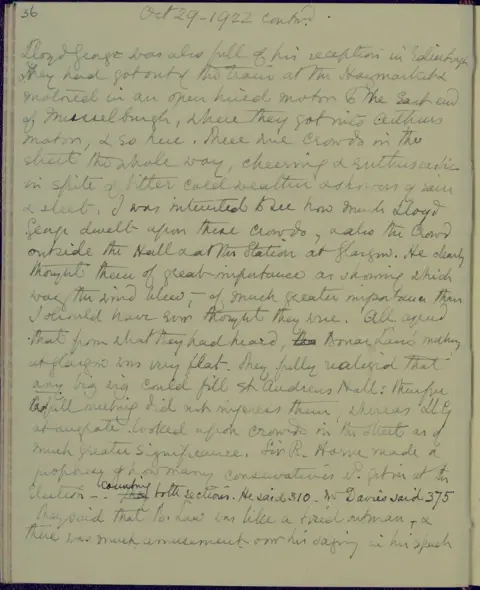 36 Oct 29 - 1922 contd.
Lloyd George was also full of his reception in Edinburgh
They had got out of the train at the Haymarket &
motored in an open hired motor to the East end
of Musselburgh, where they got into Arthurs
motor, & so here. There were crowds in the
street the whole way, cheering & enthusiastic
in spite of bitter cold weather & showers of rain
& sleet. I was interested to see how much Lloyd
George dwelt upon these crowds, & also the crowd
outside the Hall & at the Station at Glasgow. He clearly
thought them of great importance as showing which
way the wind blew, - of much greater importance than
I should have ever thought they were. All agreed
that from what they had heard, the Bonar Law's meeting
at Glasgow was very flat. They fully realised that
any big wig could fill St Andrews Hall: therefore
full meeting did not impress them, whereas Ll G
looked upon crowds in the street as of
much greater significance. Sir R. Horne made a
prophecy of how many conservatives wd. get in at the
Election - counting both sections. He said 310 - Mr Davies said 375
They said that B. Law was like a tired &
there was much amusement over his saying in his speech